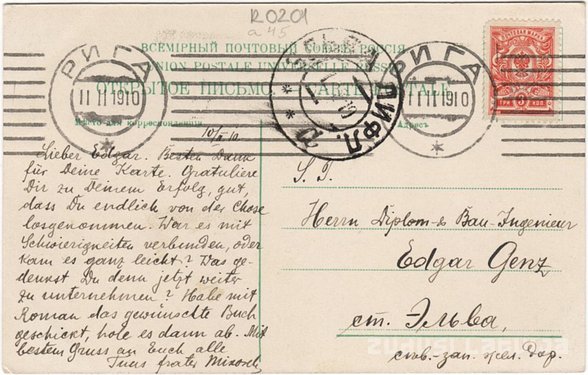 R0201
a 45
ВСЕМІРНЫЙ ПОЧТОВЫЙ СОЮЗЪ. РОССІЯ
UNION POSTALE UNIVERSELLE. RUSSIE
ОТКРЫТОЕ ПИСЬМО — CARTE POSTALE
РИГА
11 II 1910
ЛИФЛ.
РИГА
11 II 1910
ПОЧТОВАЯ МАРКА
ТРИ 3 КОП
Мѣсто для корреспонденціи
Адресъ
10/II 10
Lieber Edgar. Besten Dank
für Deine Karte. Gratuliere
Dir zu Deinem Erfolg, gut,
dass Du endlich von der Chose
losgenommen. War es mit
Schwierigkeiten verbunden, oder
kam es ganz leicht? Was ge-
denkst Du denn jetzt weiter
zu unternehmen? Habe mit
Roman das gewünschte Buch
geschickt, hole es dann ab. Mit
bestem Gruss an Euch alle
Tuus frater
S. T.
Herrn Diplom- & Bau-Ingenieur
Edgar Genz
ст. Эльва,
сѣв.-зап. жел. дор.